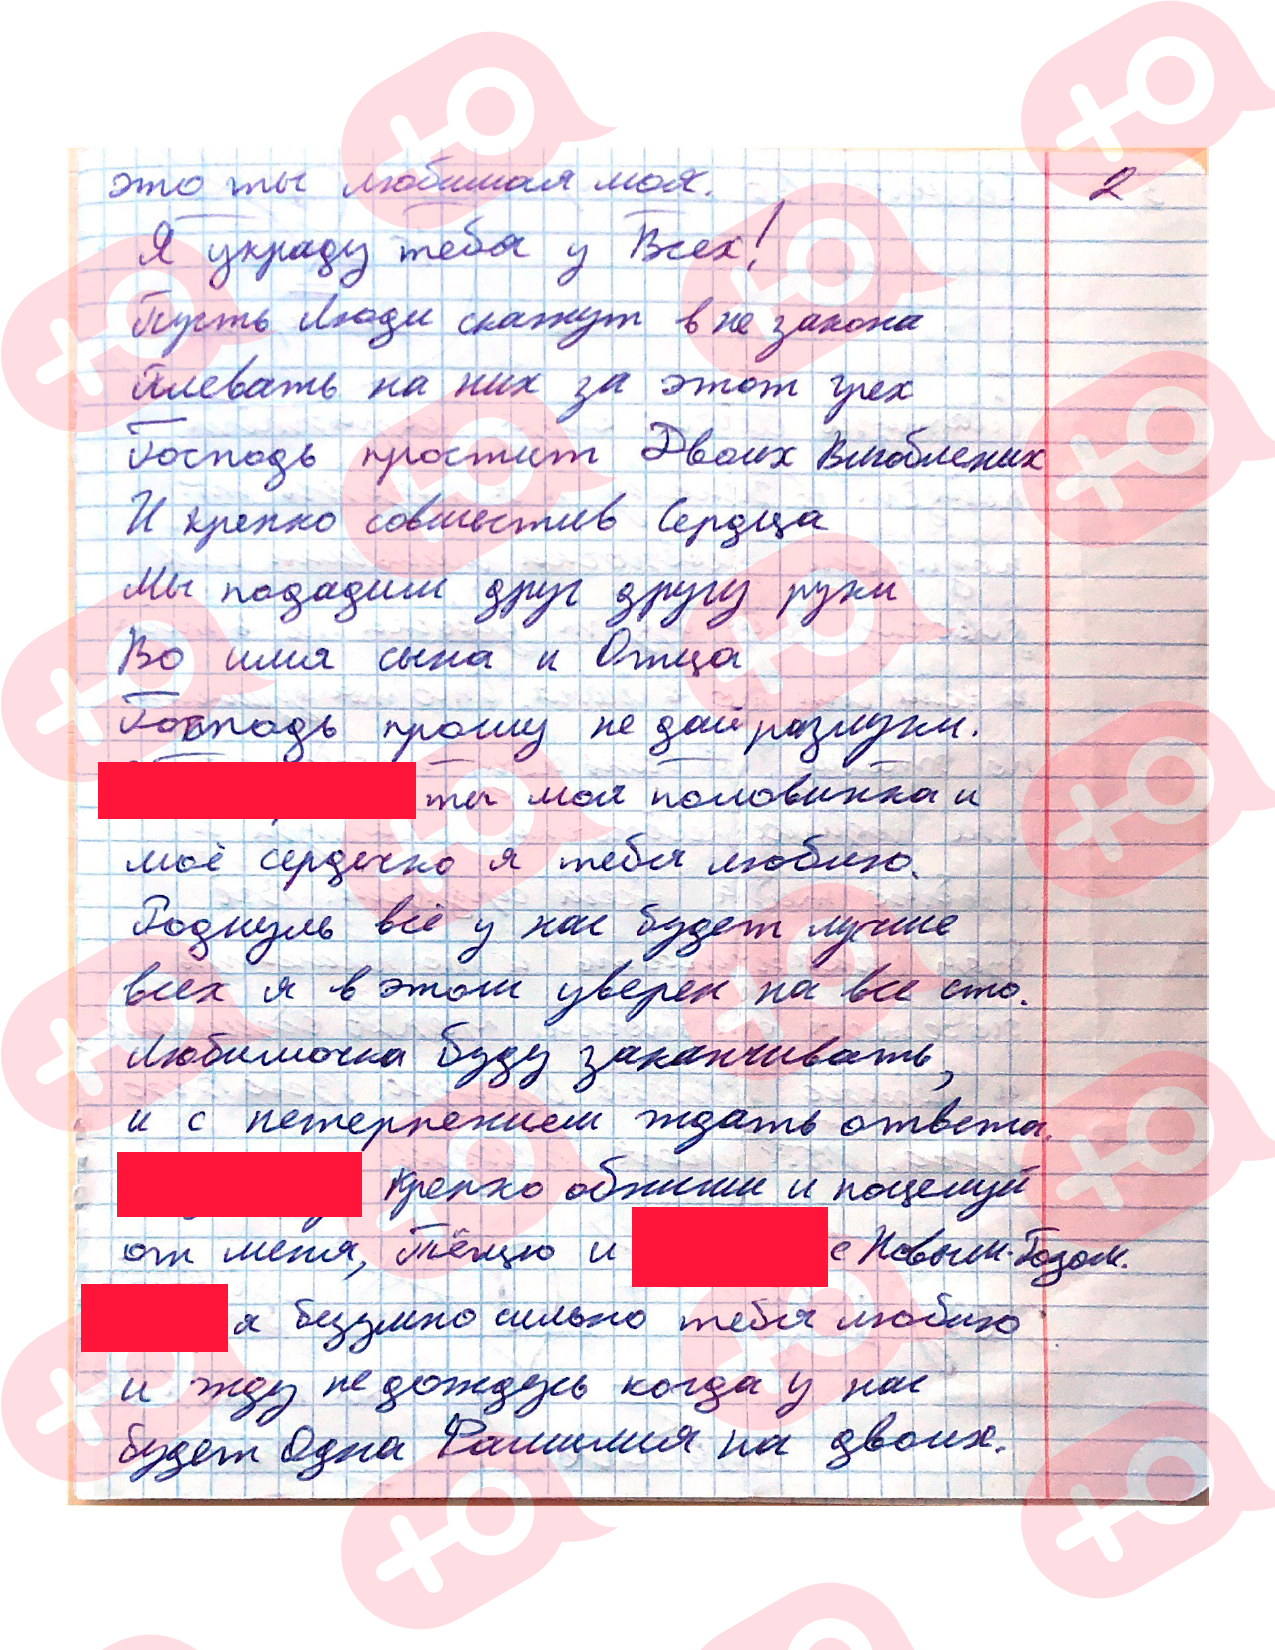 это ты любимая моя.
2
Я украду тебя у Всех!
Пусть Люди скажут вне закона
Плевать на них за этот грех
Господь простит Двоих Влюбленых
И крепко совместив Сердца
Мы подадим друг другу руки
Во имя сына и Отца
Господь прошу не дай разлуки.
ты моя половинка и
моё сердечко я тебя люблю.
Роднуль всё у нас будет лучше
всех я в этом уверен на все сто.
Любимочка буду заканчивать,
и с нетерпением ждать ответа.
Крепко обними и поцелуй
от меня, Тёщю и с Новым-Годом.
я безумно сильно тебя люблю
и жду не дождусь когда у нас
будет Одна Фамилия на двоих.